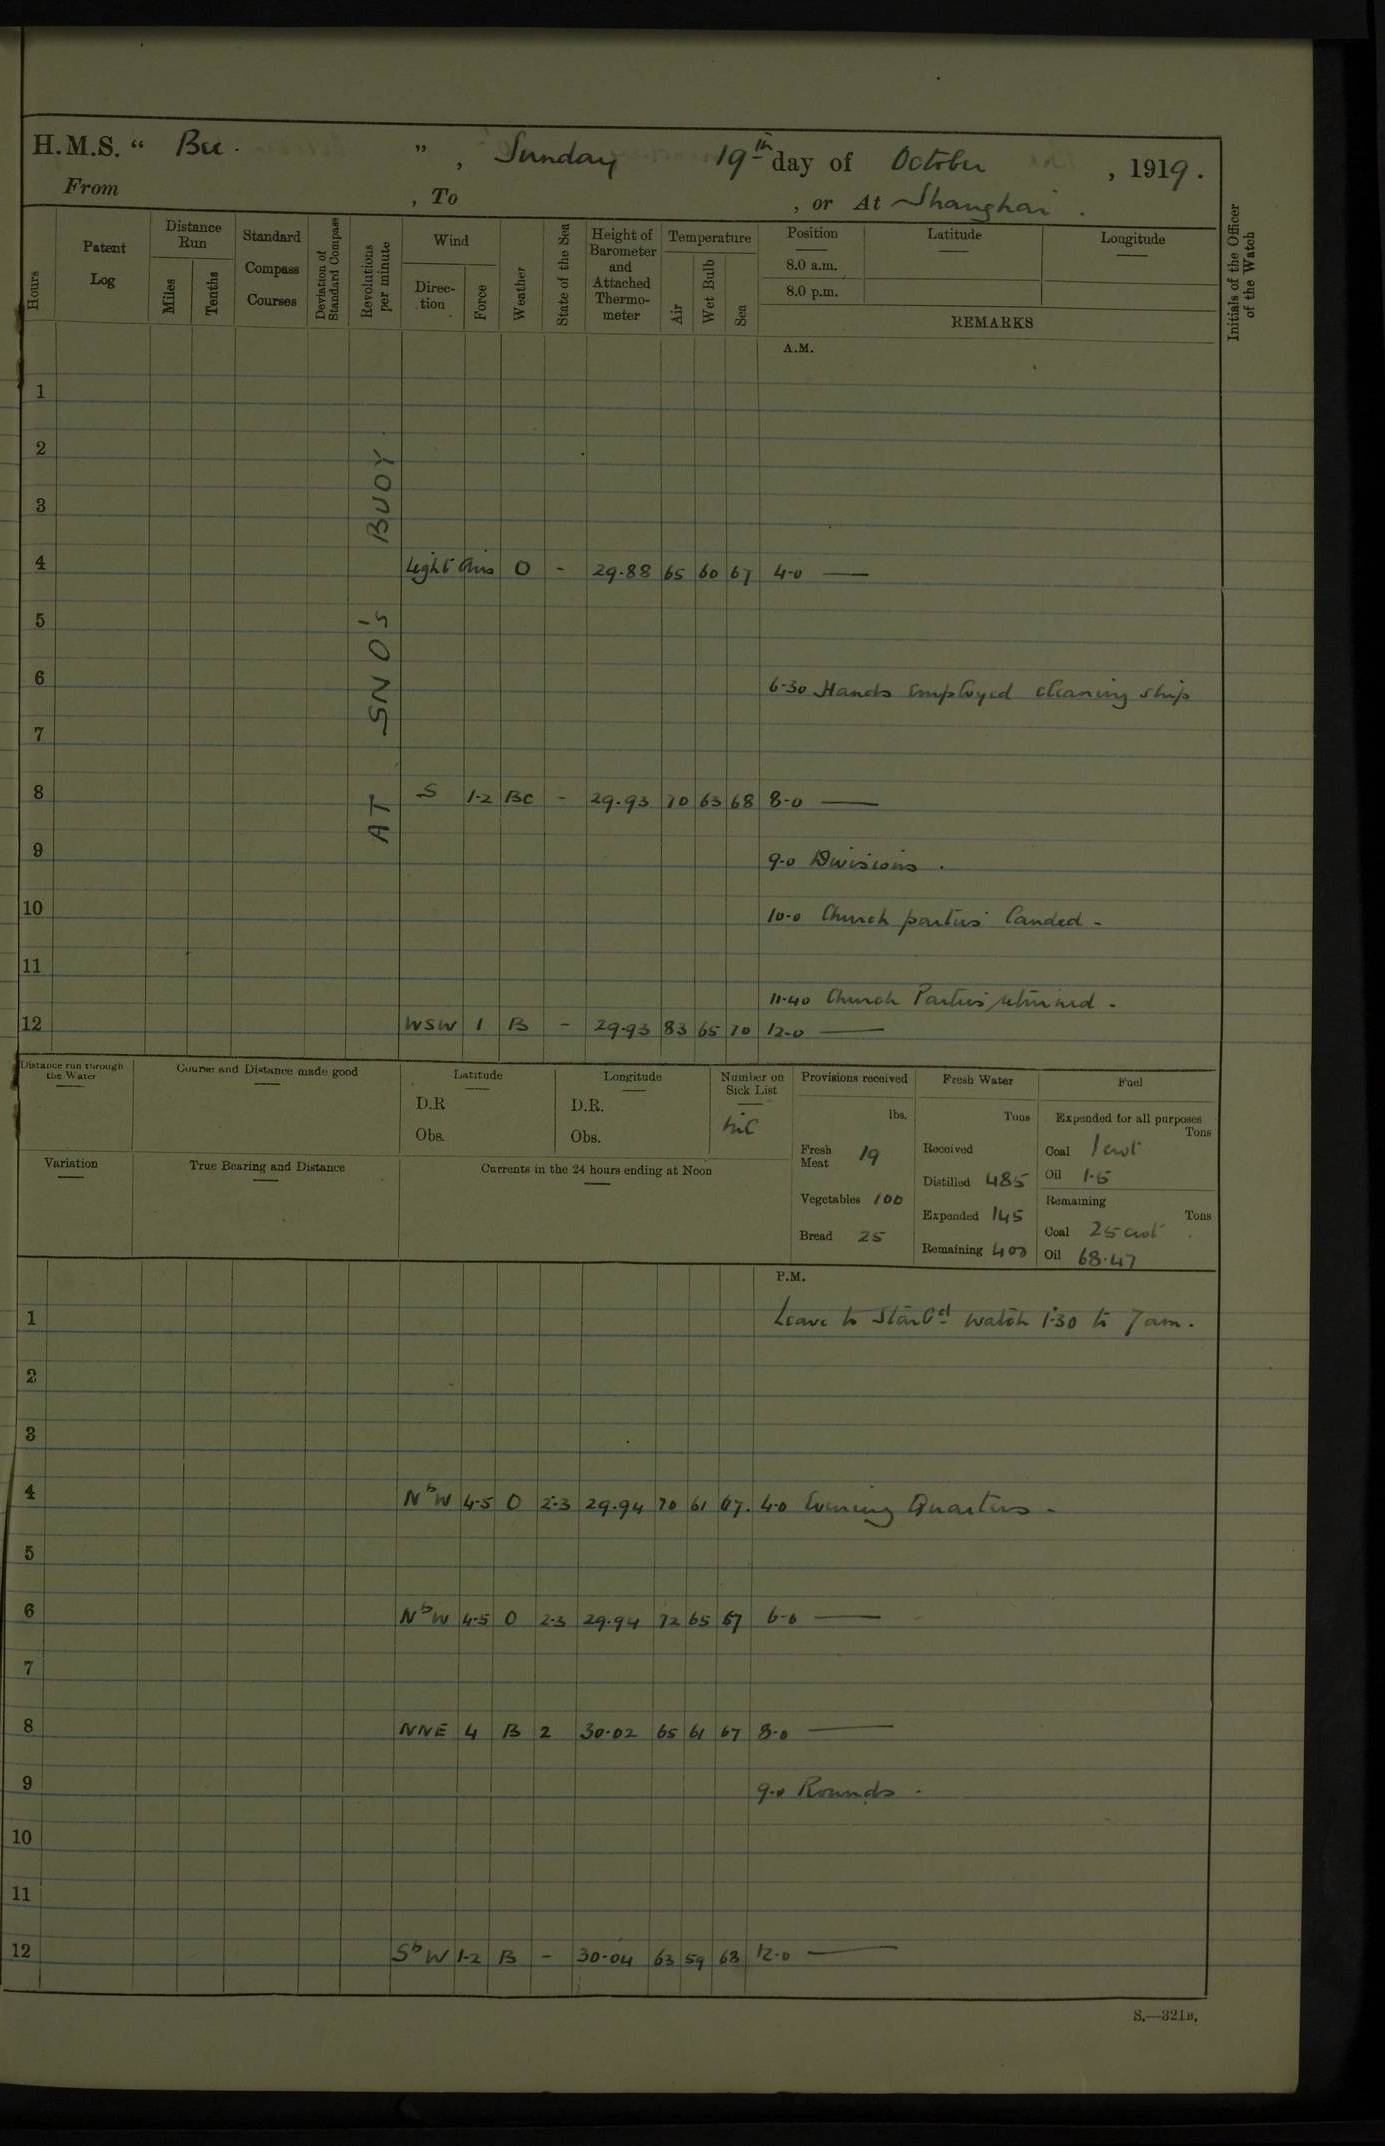 H.M.S. “ Bee. ” , Sunday 19th day of October , 1919.
From , To , or At Shanghai .
Hours
Patent Log
Distance Run
Miles
Tenths
Standard Compass Courses
Deviation of Standard Compass
Revolutions per minute
Wind
Direction
Force
Weather
State of the Sea
Height of Barometer and Attached Thermometer
Temperature
Air
Wet Bulb
Sea
Position
8.0 a.m.
8.0 p.m.
Latitude
Longitude
REMARKS
Initials of the Officer of the Watch
A.M.
AT SNO's BUOY.
1
2
3
4 Light Airs O - 29.88 65 60 67 4-0 —
5
6 6-30 Hands employed cleaning ship
7
8 S 1-2 BC - 29.93 70 63 68 8-0 —
9 9-0 Divisions .
10 10-0 Church parties landed -
11
11-40 Church Parties returned -
12 WSW 1 B - 29.93 83 65 70 12-0 —
Distance run through the Water
Course and Distance made good
Latitude
D.R
Obs.
Longitude
D.R.
Obs.
Number on Sick List
nil
Provisions received
lbs.
Fresh Meat 19
Vegetables 100
Bread 25
Fresh Water
Tons
Received
Distilled 485
Expended 145
Remaining 400
Fuel
Expended for all purposes
Tons
Coal 1 cwt
Oil 1.5
Remaining
Tons
Coal 25 cwt
Oil 68.47
Variation
True Bearing and Distance
Currents in the 24 hours ending at Noon
P.M.
1 Leave to Starbd watch 1.30 to 7 am.
2
3
4 NbW 4-5 O 2-3 29.94 70 61 67. 4-0 Evening Quarters -
5
6 NbW 4-5 O 2-3 29.94 72 65 67 6-0 —
7
8 NNE 4 B 2 30.02 65 61 67 8-0 —
9 9-0 Rounds .
10
11
12 SbW 1-2 B - 30.04 63 59 68 12-0 —
S.—321B.